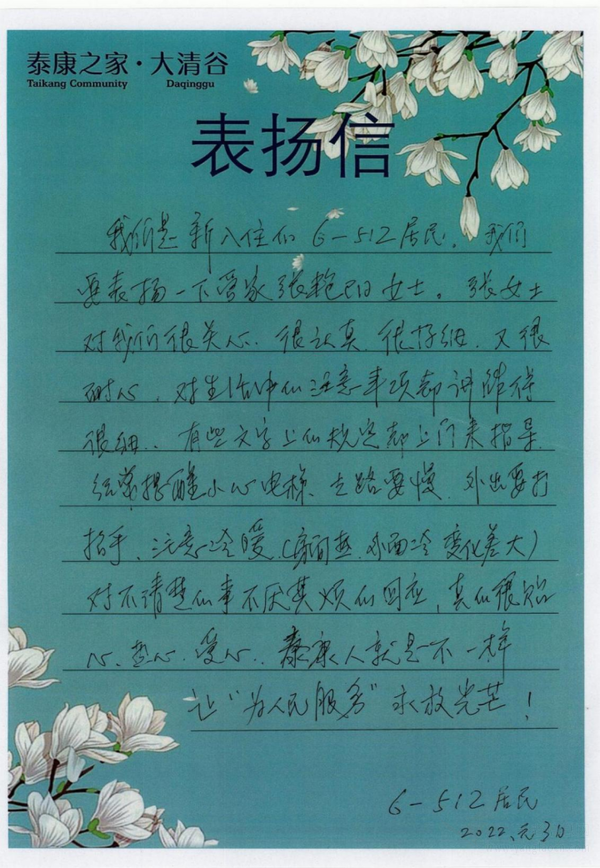 泰康之家·大清谷
Taikang Community Daqinggu
表扬信
我们是新入住的 6-512居民。我们
要表扬一下管家张艳女士。张女士
对我们很关心、很认真 很仔细、又很
耐心、对生活中的注意事项都讲解得
很细、有些文字上的规定都上门来指导
经常提醒小心电梯、走路要慢、外出要打
招手、注意冷暖、(房间热、外面冷 变化差大)
对不清楚的事不厌其烦的回应,真的很贴
心、热心、爱心、泰康人就是不一样
让“为人民服务”永放光芒!
6-512居民
2022、元、3日